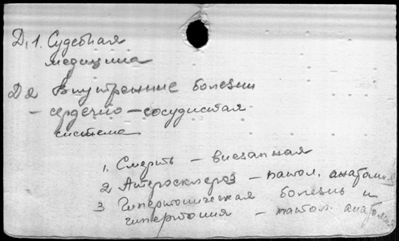 Д.1. Судебная
медицина
Д2 Внутренние болезни
– сердечно-сосудистая
система
1. Смерть – внезапная
2 Атеросклероз – патол. анатомия
3 Гипертоническая болезнь и
гипертония – патол. анатомия